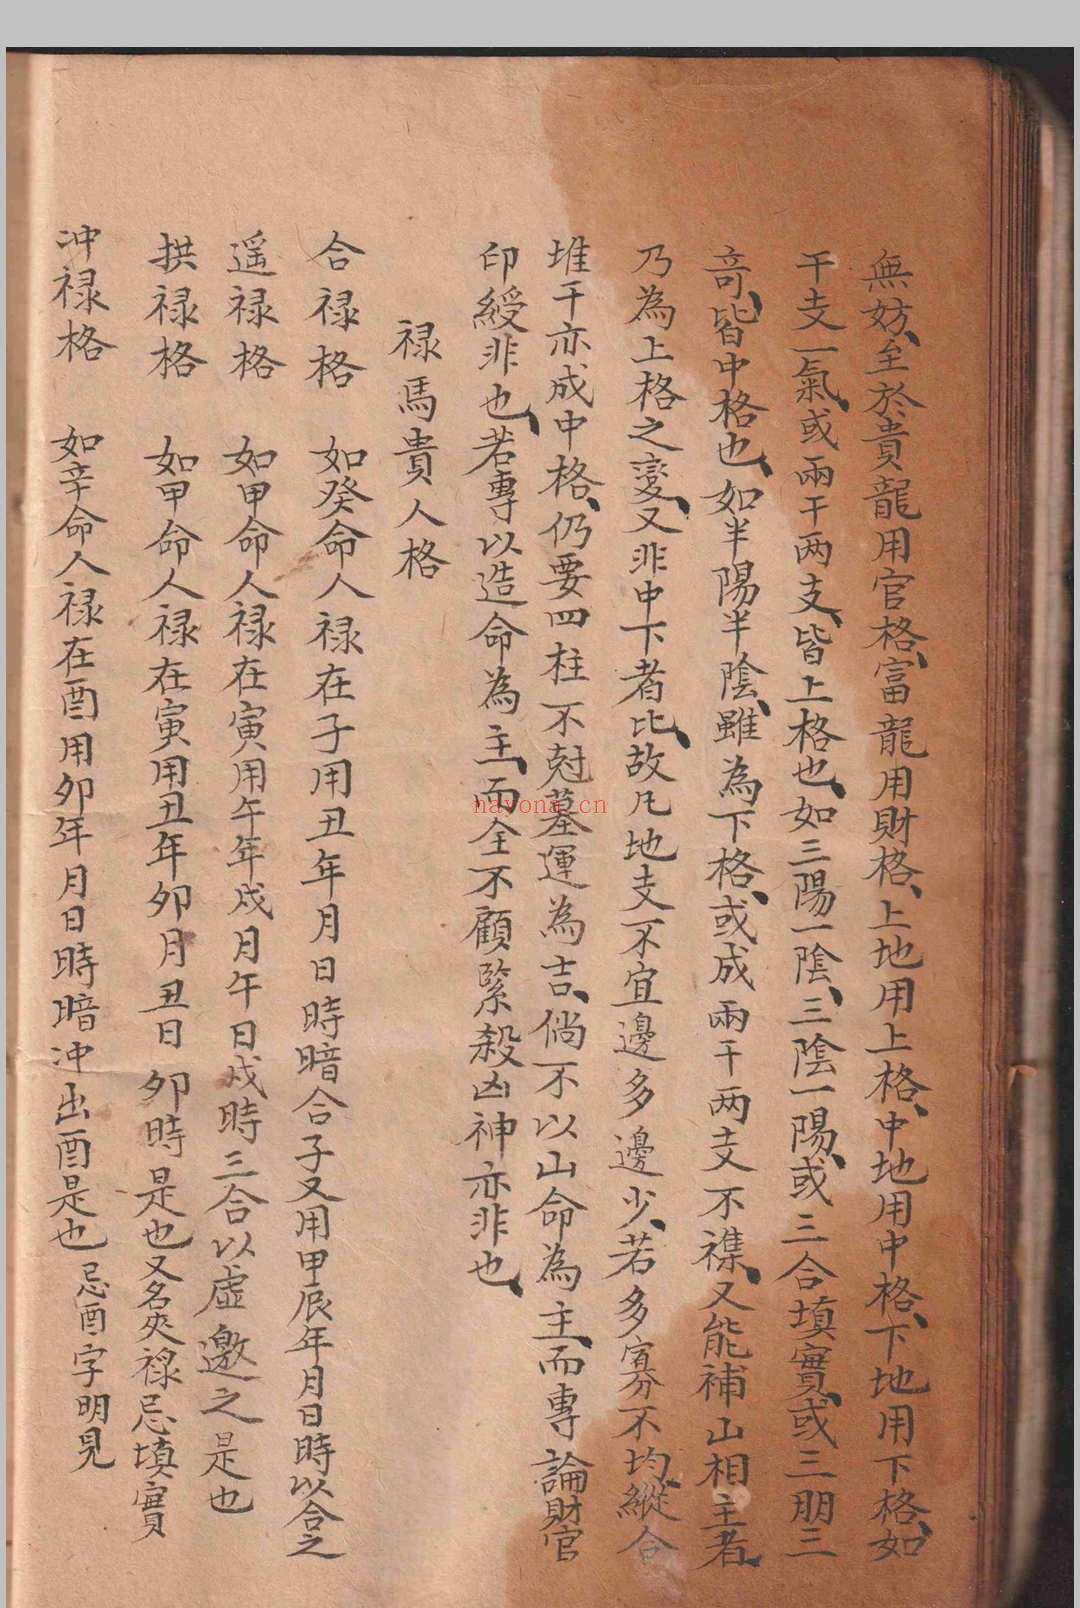 無妨、至於貴龍用官格、富龍用財格、上地用上格、中地用中格、下地用下格、如
干支一氣、或兩干两支、皆上格也、如三陽一陰、三陰一陽、或三合填實、或三朋三
竒、皆中格也、如半陽半陰、雖為下格、或成兩干两支不襍、又能補山相主者、
乃為上格之變、又非中下者比、故凡地支不宜邊多邊少、若多寡不均、縱合
堆干亦成中格、仍要四柱不尅墓運為吉、倘不以山命為主、而專論財官
印綬非也、若專以造命為主、而全不顧緊殺凶神亦非也、
禄馬貴人格
合禄格 如癸命人禄在子用丑年月日時暗合子又用甲辰年月日時以合之
遥禄格 如甲命人禄在寅用午年戌月午日戌時三合以虛邀之是也
拱禄格 如甲命人禄在寅用丑年卯月丑日卯時是也又名夾禄忌填實
冲禄格 如辛命人禄在酉用卯年月日時暗冲出酉是也忌酉字明見
nayona.cn